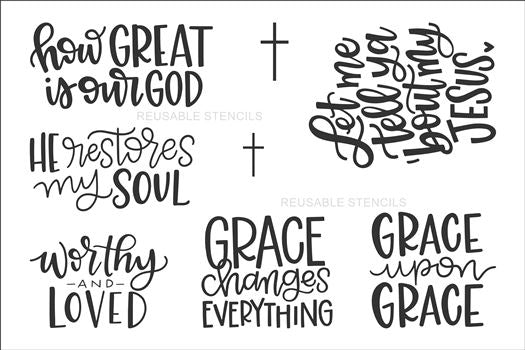 how GREAT
is our GOD
REUSABLE STENCILS
Let me
tell ya
'bout my
JESUS.
HE restores
my SOUL
REUSABLE STENCILS
worthy
-AND-
LOVED
GRACE
changes
EVERYTHING
GRACE
upon
GRACE